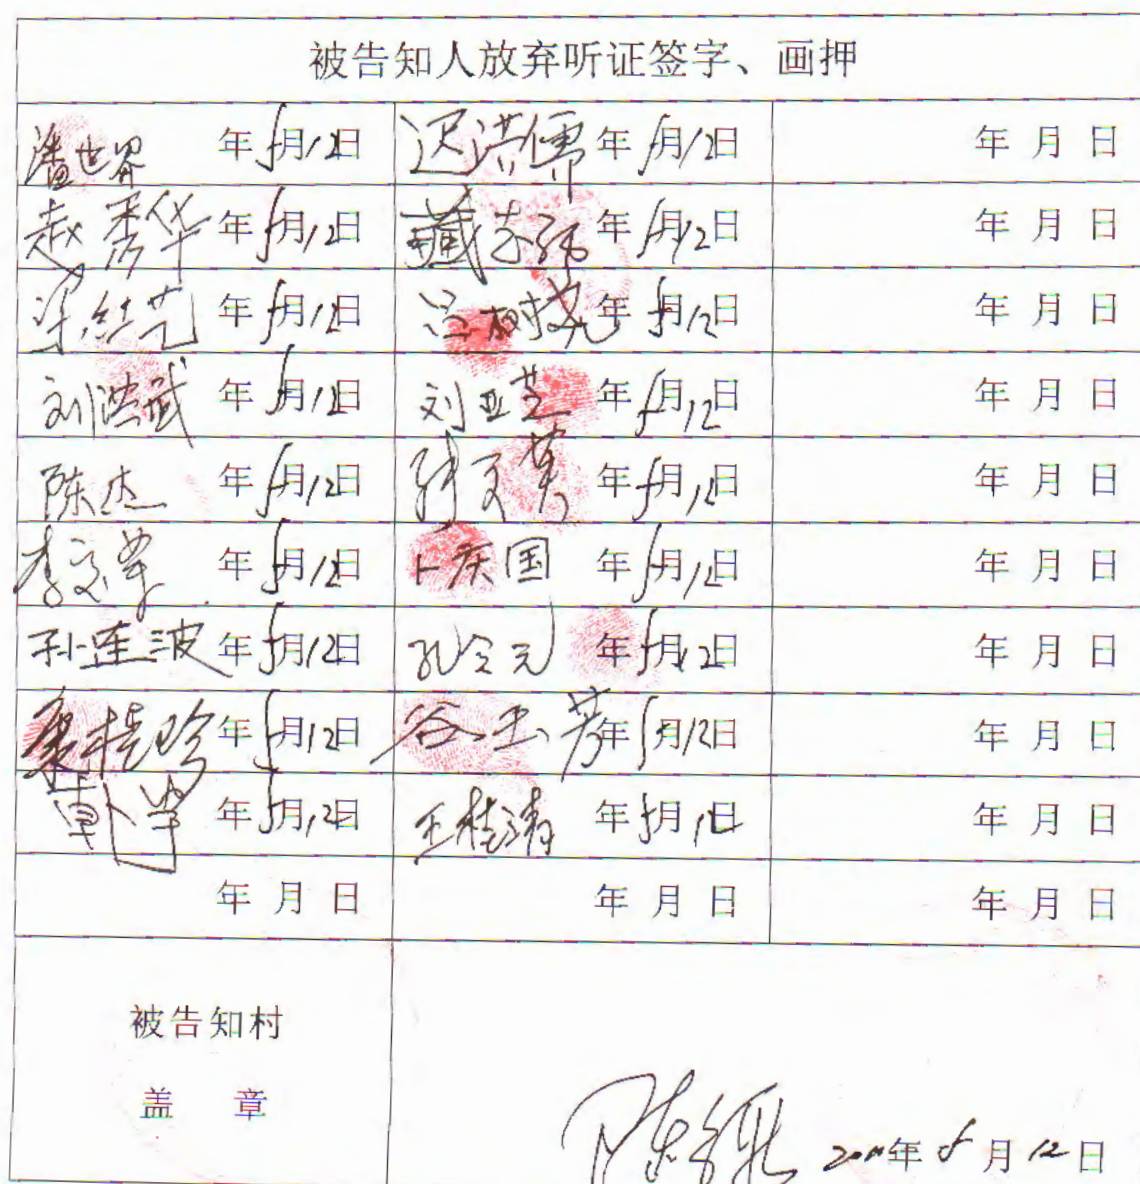 被告知人放弃听证签字、画押
潘世界 年5月12日 迟洪儒 年5月12日 年 月 日
赵秀华 年5月12日 藏 年5月12日 年 月 日
年5月12日 年5月12日 年 月 日
刘洪武 年5月12日 刘亚芝 年5月12日 年 月 日
陈杰 年5月12日 年5月12日 年 月 日
李 军 年5月12日 卜庆国 年5月12日 年 月 日
孙莲波 年5月12日 孔令元 年5月12日 年 月 日
桂珍 年5月12日 谷玉芳 年5月12日 年 月 日
年5月12日 王桂清 年5月12日 年 月 日
年 月 日 年 月 日 年 月 日
被告知村
盖 章
陈 年5月12日